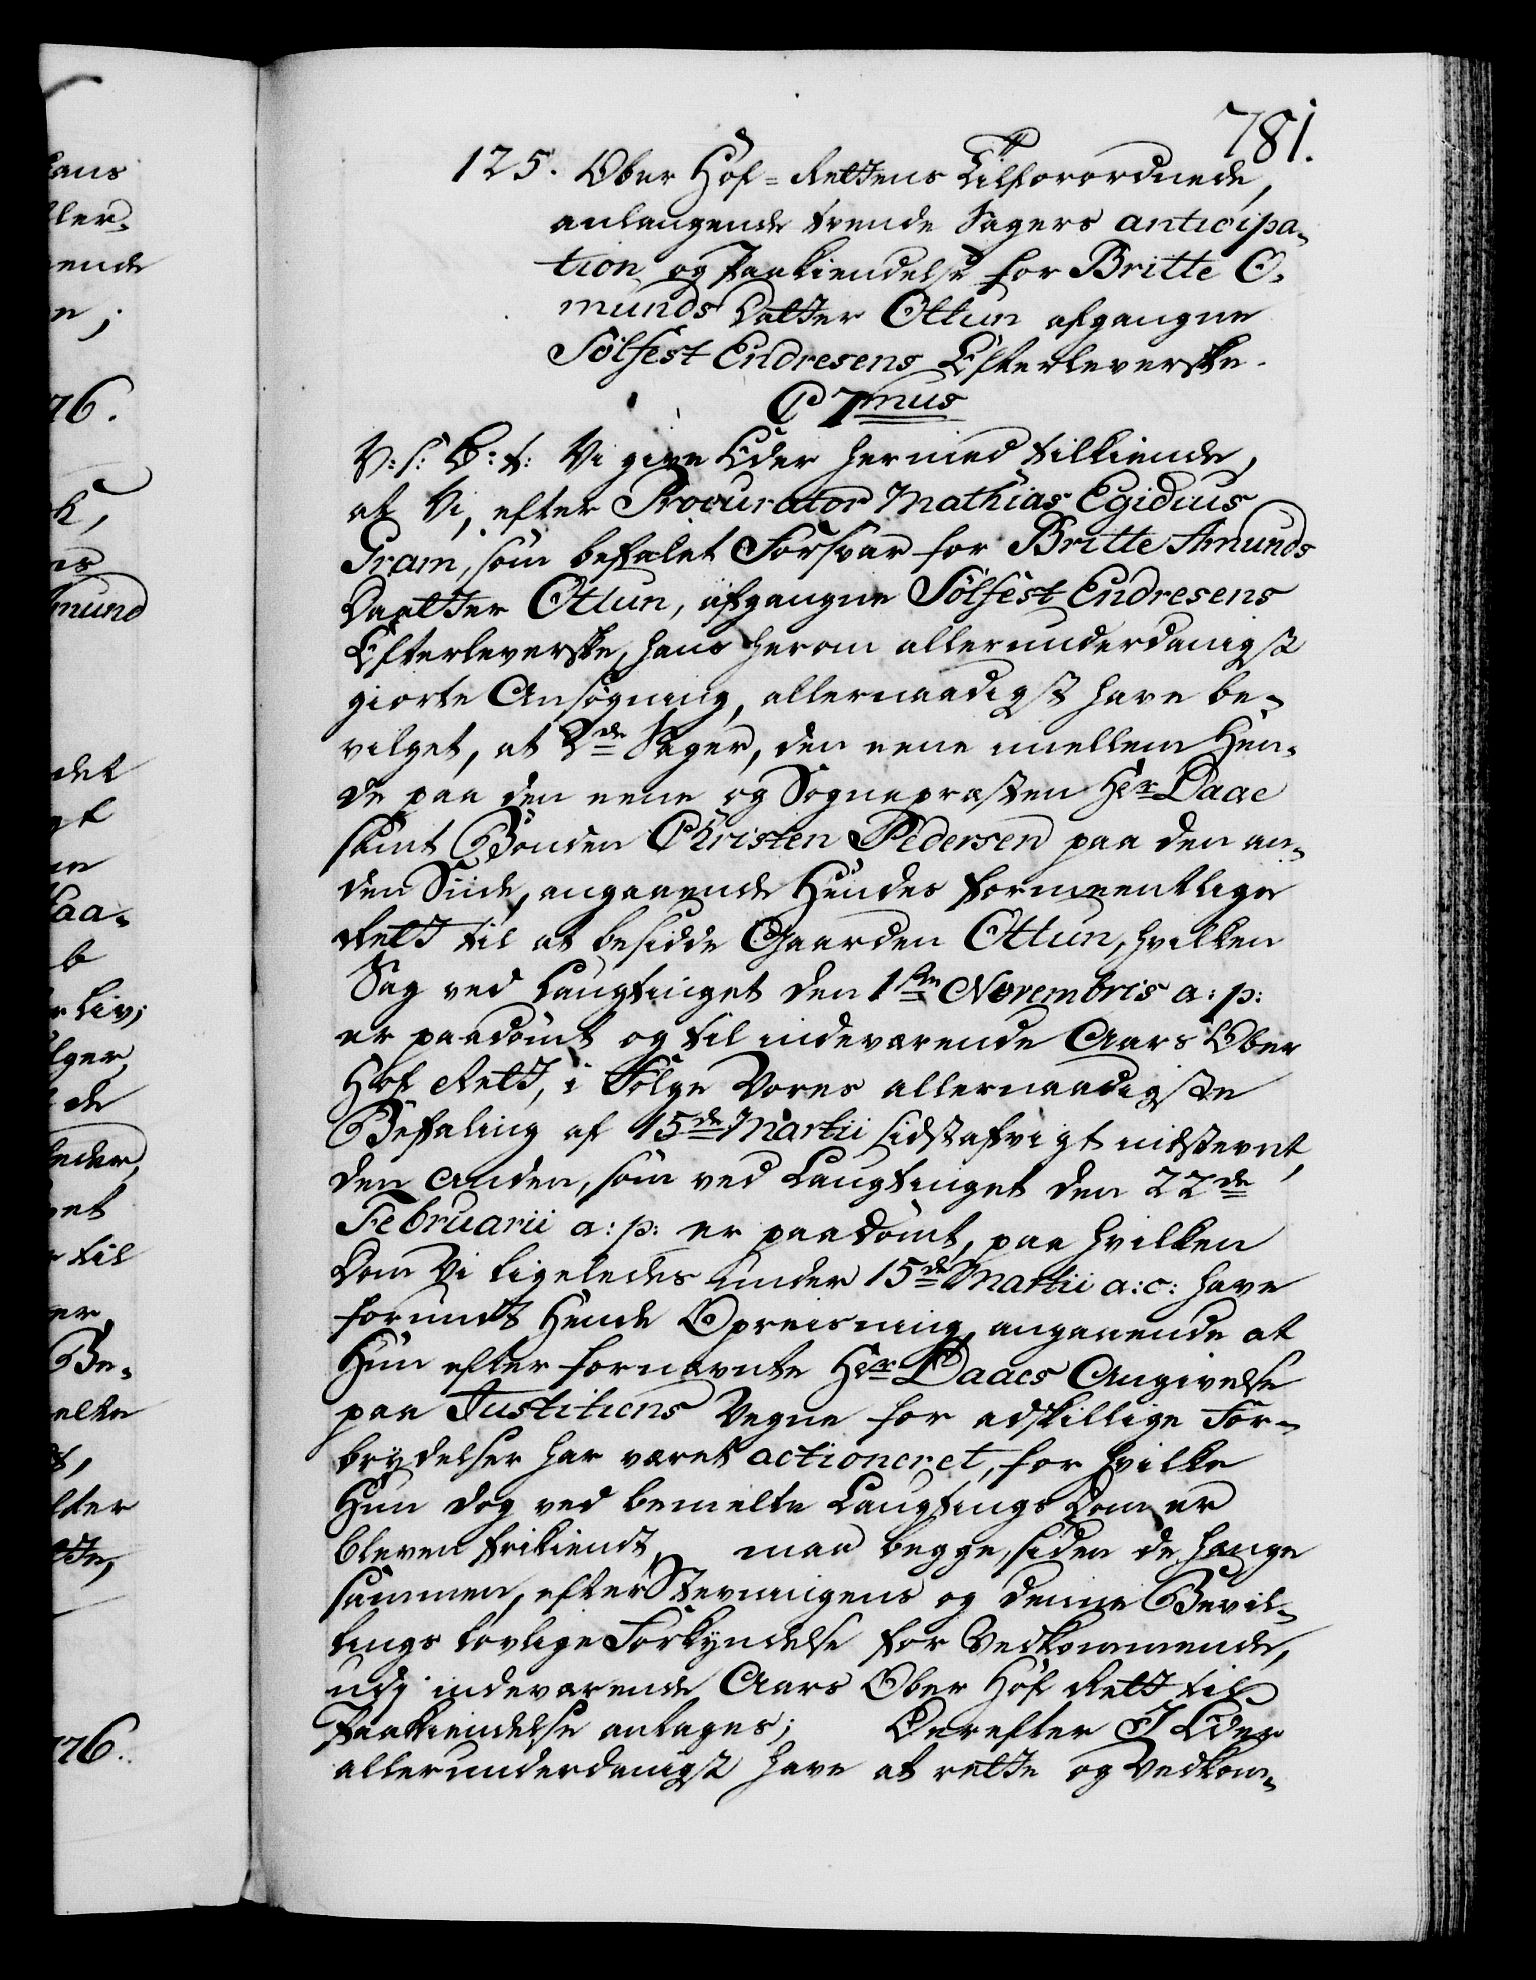 781.
125. Ober Hof-Rettens Tilforordnede,
anlangende tvende Sagers anticipa-
tion og Paakiendelse for Britte O-
munds Datter Ottun afgangne
Sølfest Endresens Efterleverske.
C 7mus
V: s: G: t: Vi give Eder hermed tilkiende,
at Vi, efter Procurator Mathias Egidius
Gram, som befalet Forsvar for Britte Amunds
Daatter Ottun, afgangne Sølfest Endresens
Efterleverske, hans herom allerunderdanigst
giorte Ansøgning, allernaadigst have be-
vilget, at 2de Sager, den eene imellem Hen-
de paa den eene og Sognepræsten Hr Daae
samt Bonden Christen Pedersen paa den an-
den Siide, angaaende Hendes formeentlige
Rett til at besidde Gaarden Ottun, hvilken
Sag ved Laugtinget den 1ste Novembris a: p:
er paadømt og til indeværende Aars Ober
Hof Rett, i Følge Vores allernaadigste
Befaling af 15de Martii sidstafvigt udstevnt,
den anden, som ved Laugtinget den 22de
Februarii a: p: er paadømt, paa hvilken
Dom Vi ligeledes under 15de Martii a: c: have
forundt Hende Opreisning, angaaende at
Hun efter fornævnte Hr Daaes Angivelse
paa Justitiens Vegne for adskillige For-
brydelser har været actioneret, for hvilke
Hun dog ved bemelte Laugtings Dom er
bleven frikiendt, maa begge, siden de hænge
sammen, efter Stevningens og denne Bevil-
lings lovlige Forkyndelse for Vedkommende,
udj indeværende Aars Ober Hof Rett til
Paakiendelse antages; Derefter I Eder
allerunderdanigst have at rette og Vedkom-